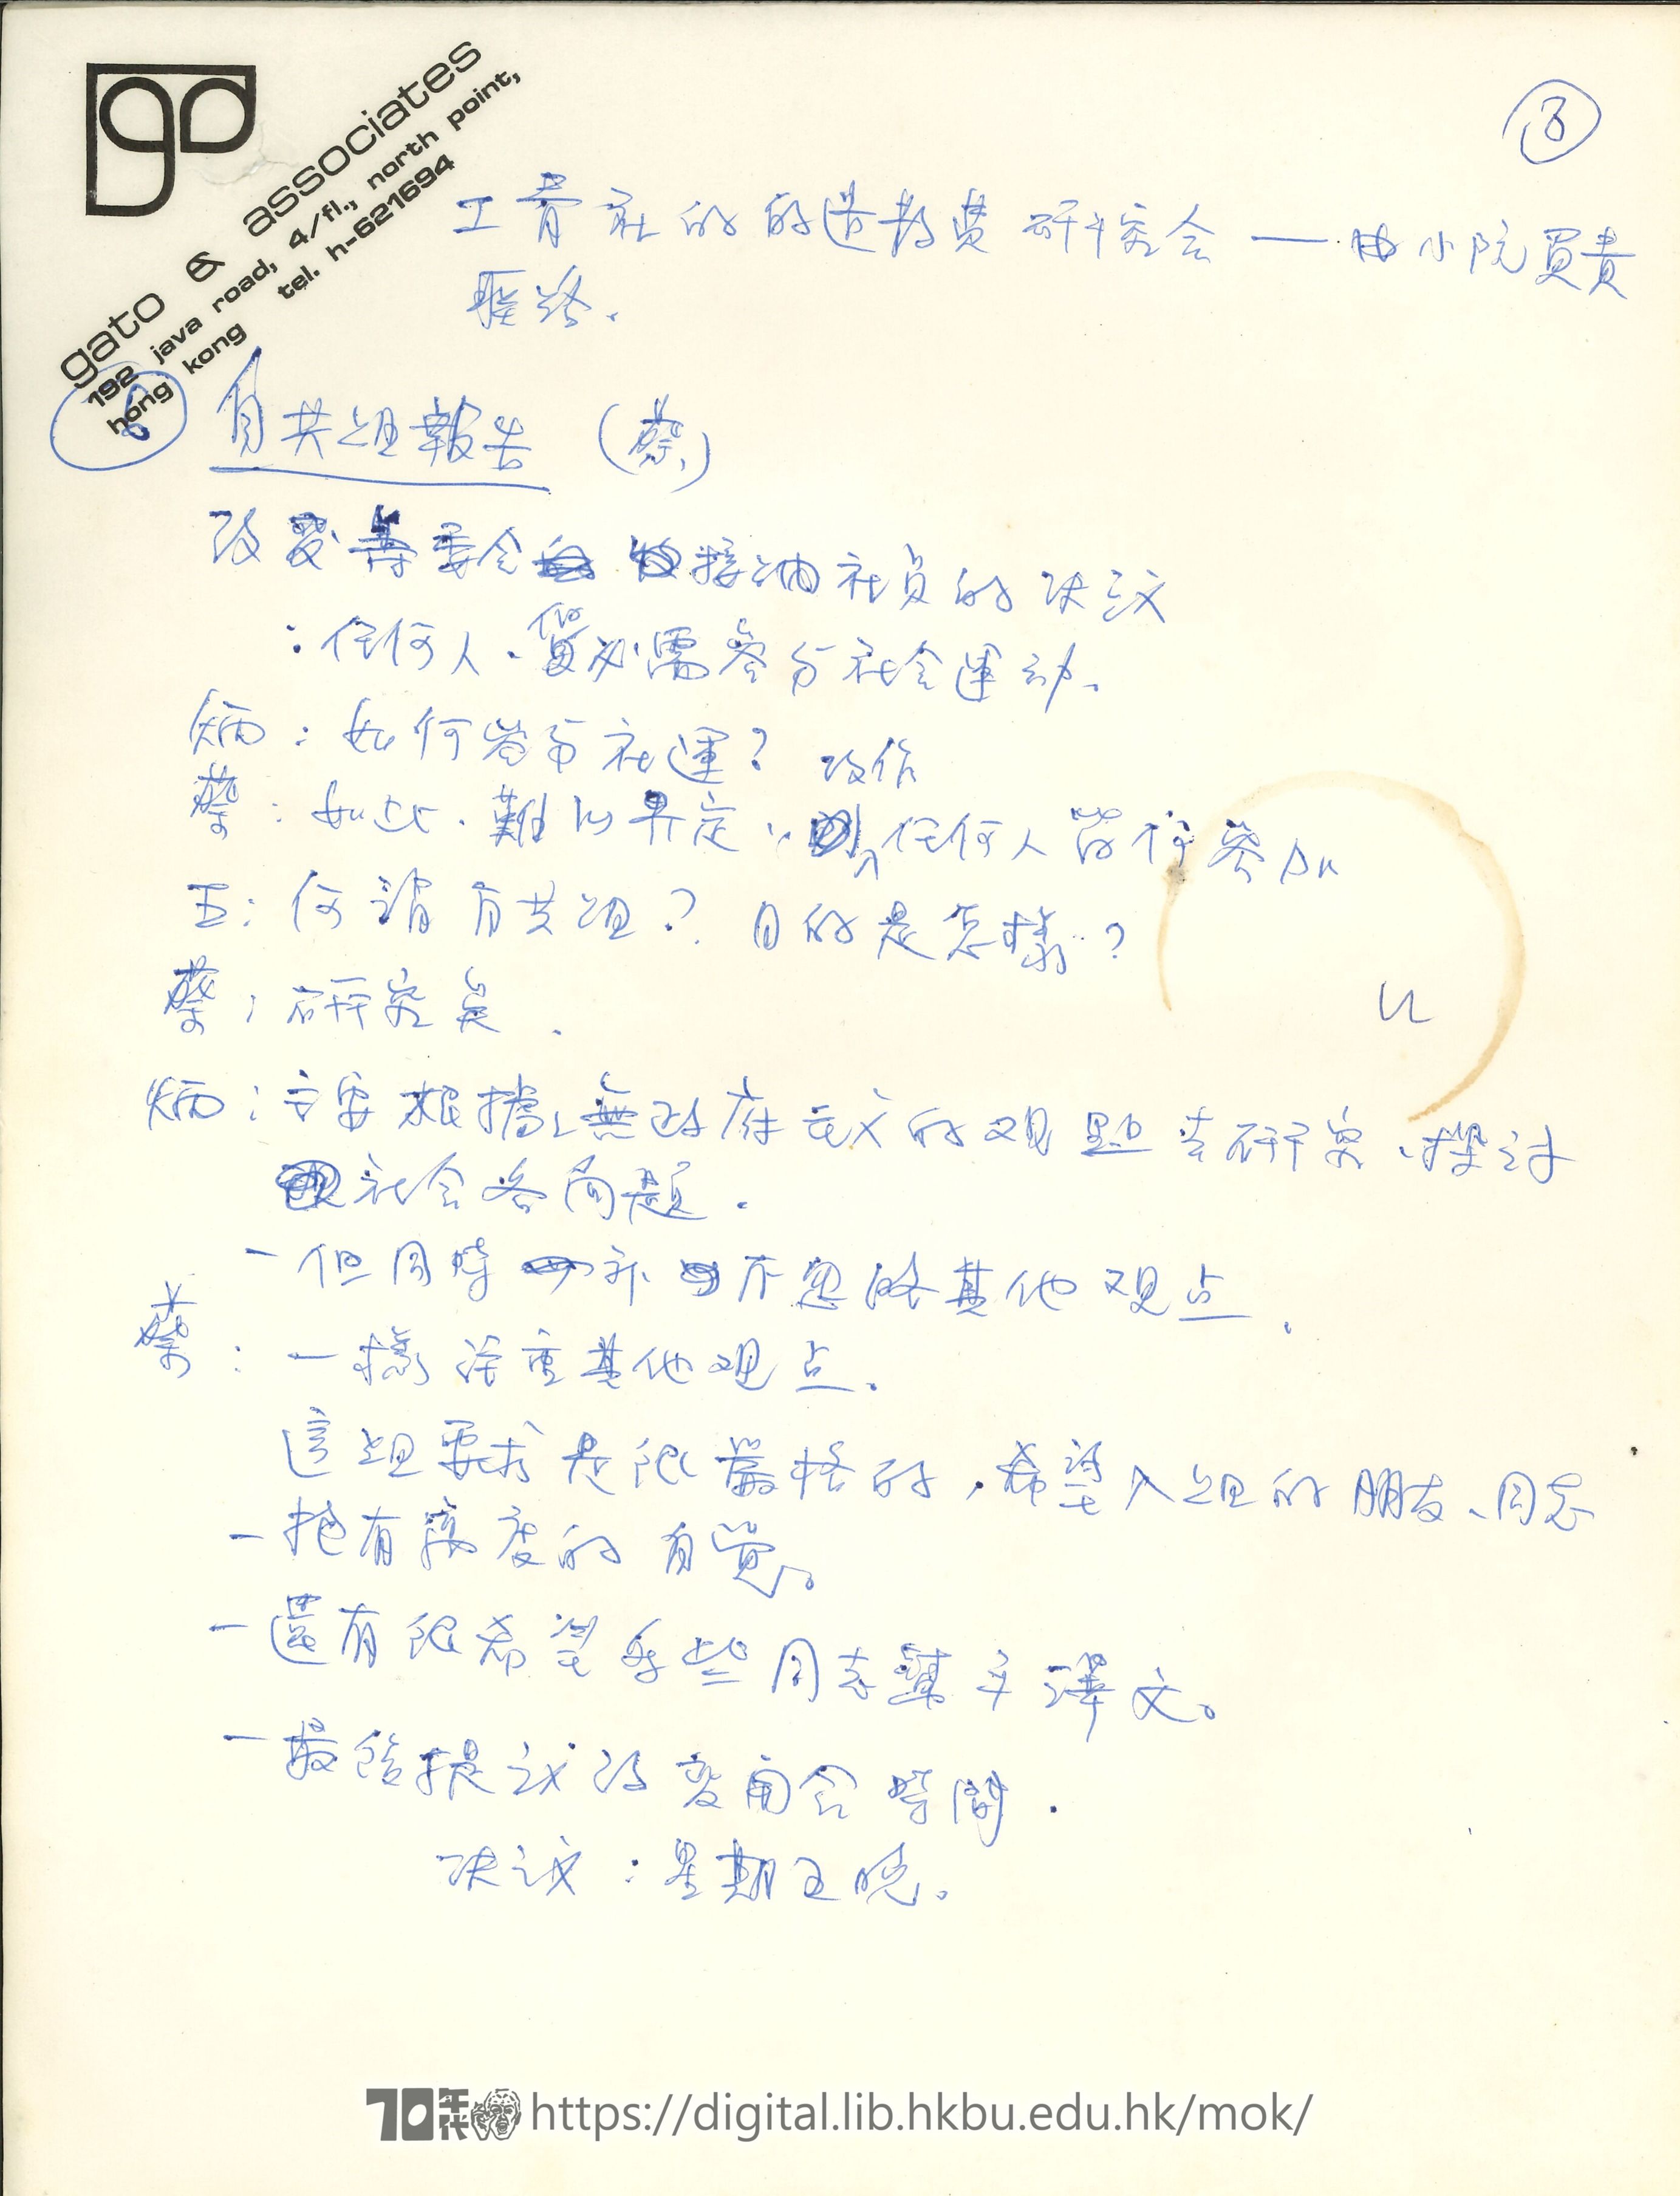 go
gato & associates
192 java road, 4/fl., north point,
hong kong tel. h-621694
⑧
工青社的的遣散費研究会 — 由小阮買責
联络.
⑥ 自共组報告 (蔡)
改变 委会 接納社員的决议
：任何人、 必需參与社会運动.
炳：如何參与社運？ 改作
蔡：如此、難以界定、任何人皆可參加
玉：何謂自共组？目的是怎樣？
蔡：研究員.
炳：主要根據無政府主义的观點去研究、探讨
社会各問題.
- 但同時亦不忽略其他观点.
蔡：一樣注重其他观点.
這组要求是很嚴格的,希望入组的朋友、同志
- 抱有高度的自觉。
- 還有很希望多些同志幫手譯文。
- 最後提议改变開会時間.
决议：星期五晚。
70年代 https://digital.lib.hkbu.edu.hk/mok/